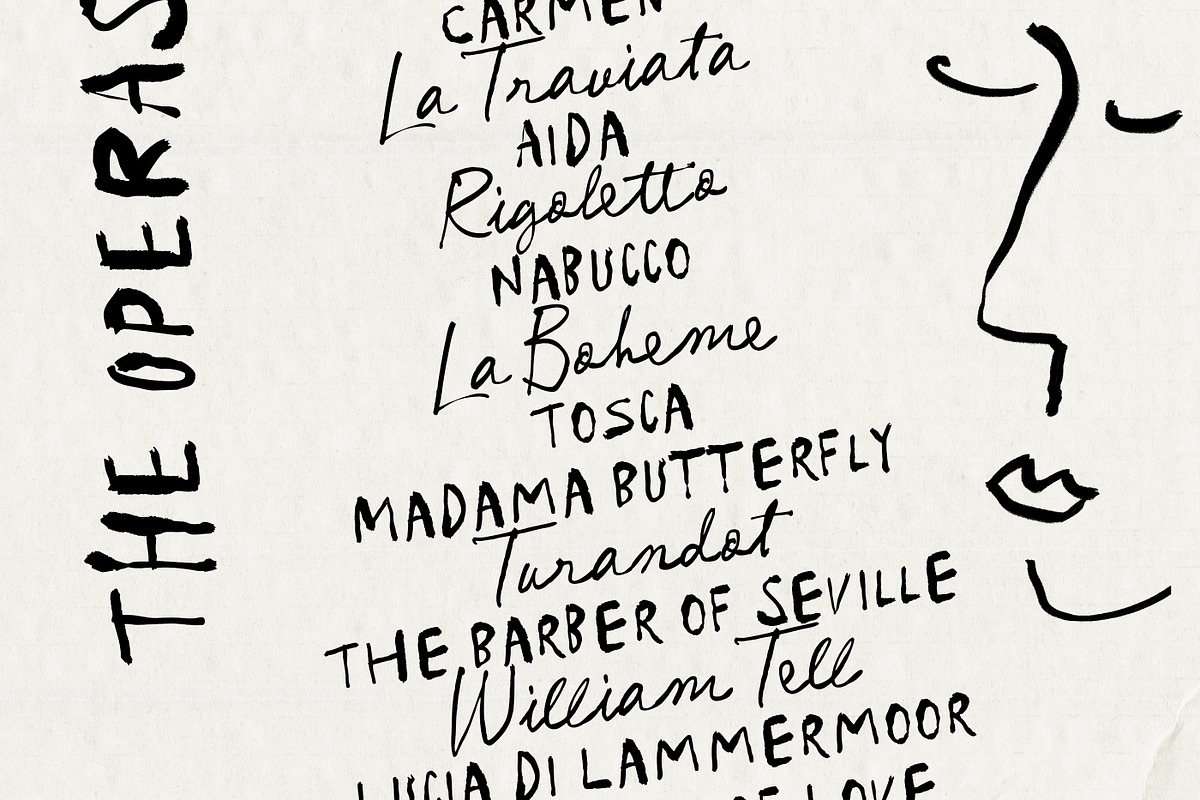 THE OPERAS
CARMEN
La Traviata
AIDA
Rigoletto
NABUCCO
La Boheme
TOSCA
MADAMA BUTTERFLY
Turandot
THE BARBER OF SEVILLE
William Tell
LUCIA DI LAMMERMOOR
OF LOVE